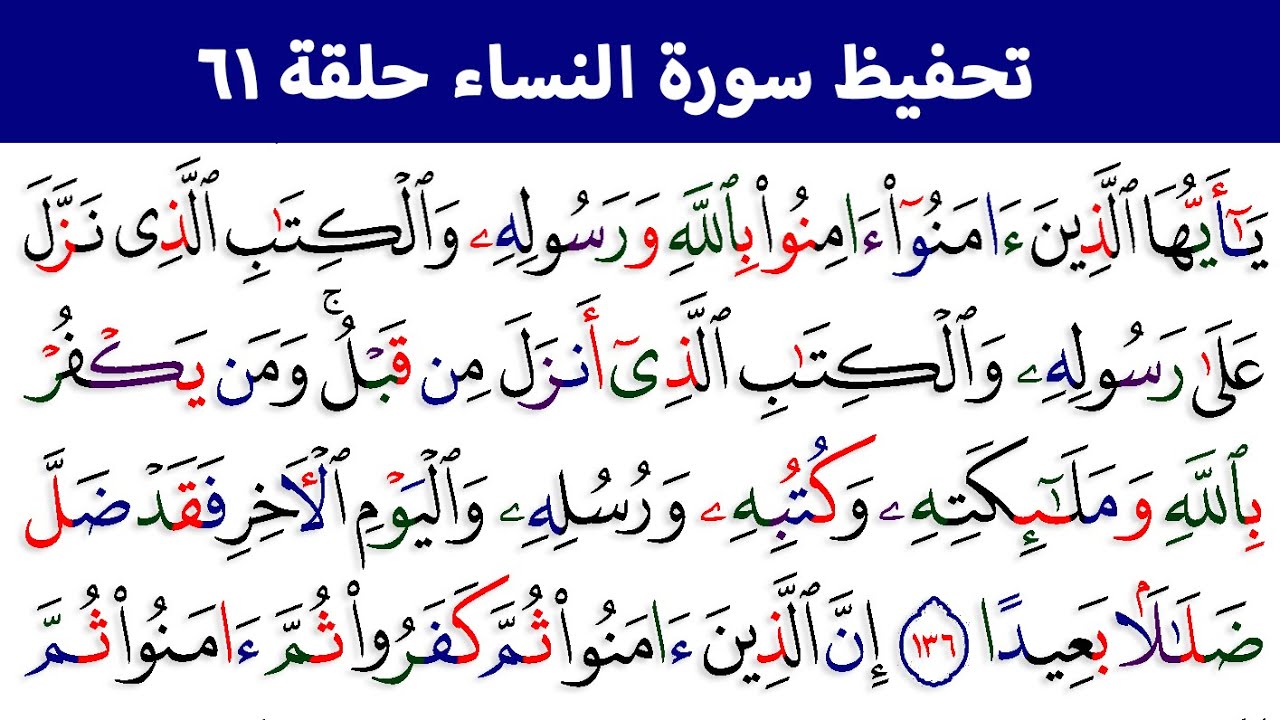 تحفيظ سورة النساء حلقة ٦١
يَـٰٓأَيُّهَا ٱلَّذِينَ ءَامَنُوٓا۟ ءَامِنُوا۟ بِٱللَّهِ وَرَسُولِهِۦ وَٱلْكِتَـٰبِ ٱلَّذِى نَزَّلَ
عَلَىٰ رَسُولِهِۦ وَٱلْكِتَـٰبِ ٱلَّذِىٓ أَنزَلَ مِن قَبْلُ ۚ وَمَن يَكْفُرْ
بِٱللَّهِ وَمَلَـٰٓئِكَتِهِۦ وَكُتُبِهِۦ وَرُسُلِهِۦ وَٱلْيَوْمِ ٱلْـَٔاخِرِ فَقَدْ ضَلَّ
ضَلَـٰلًۢا بَعِيدًا ١٣٦ إِنَّ ٱلَّذِينَ ءَامَنُوا۟ ثُمَّ كَفَرُوا۟ ثُمَّ ءَامَنُوا۟ ثُمَّ